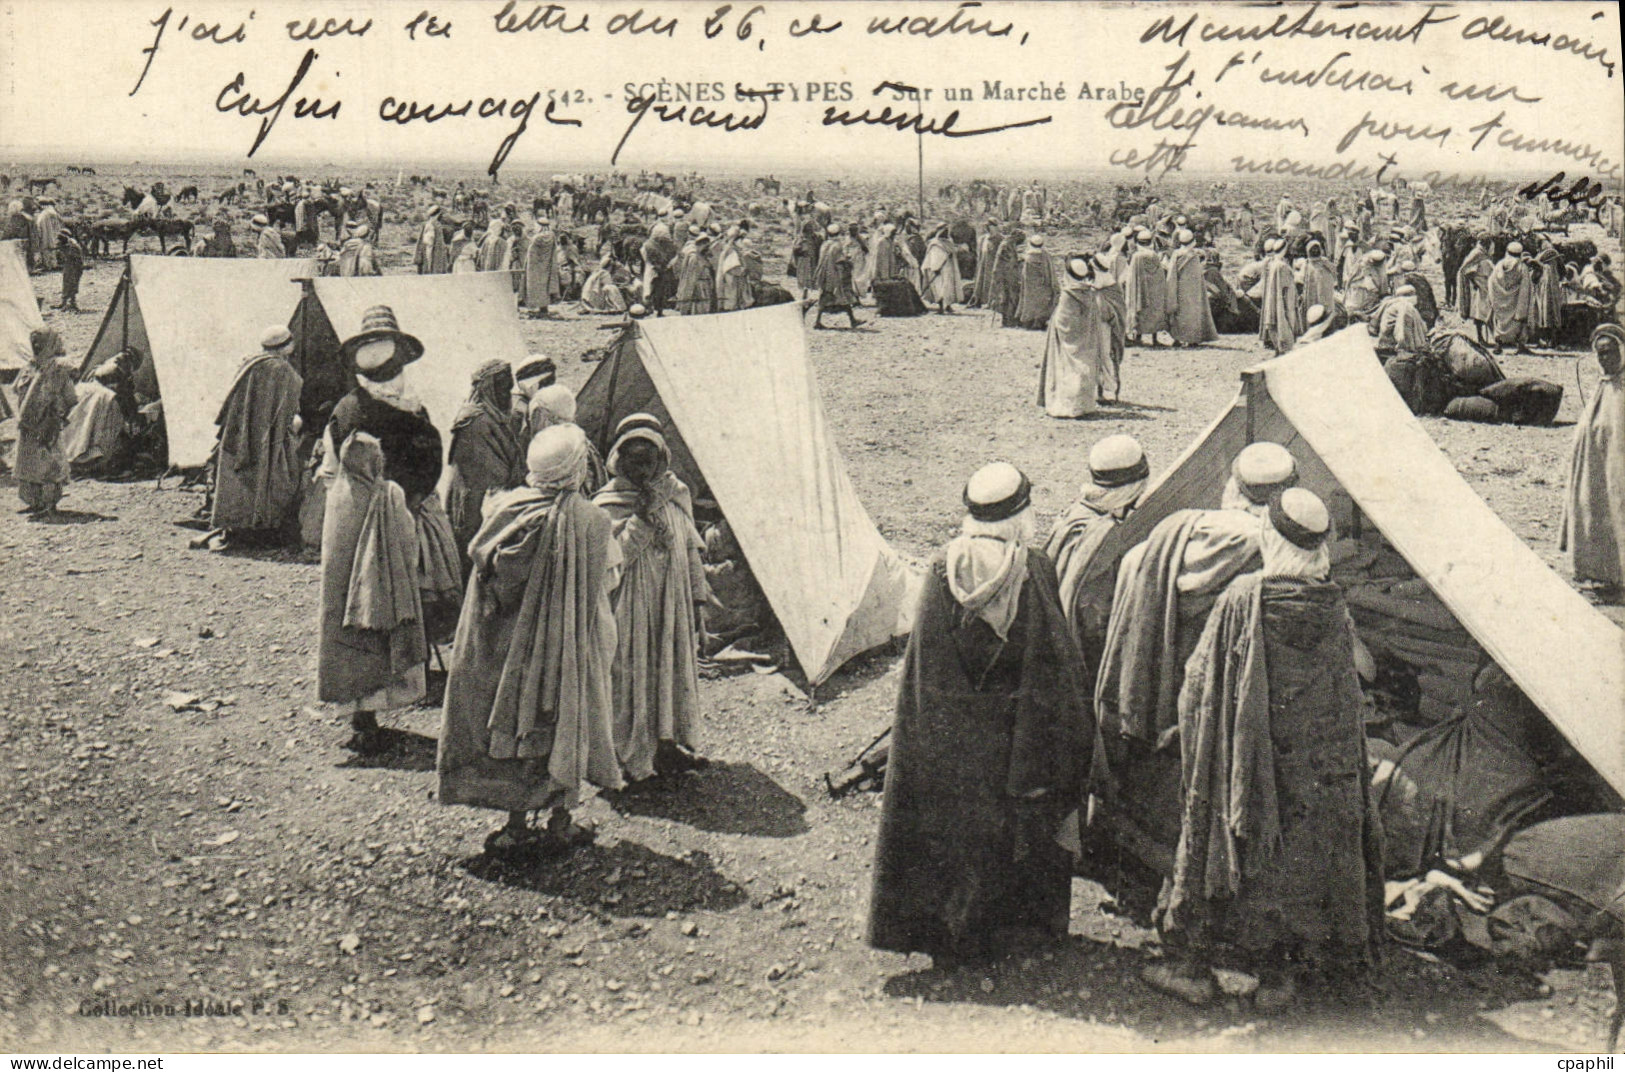 J'ai reçu ta lettre du 26, ce matin,
Enfin courage quand même
Maintenant demain
Je t'enverrai un
télégramme pour t'annoncer
cette maudite nouvelle
542. - SCÈNES et TYPES - Sur un Marché Arabe
Collection Idéale P. S.
cpaphil